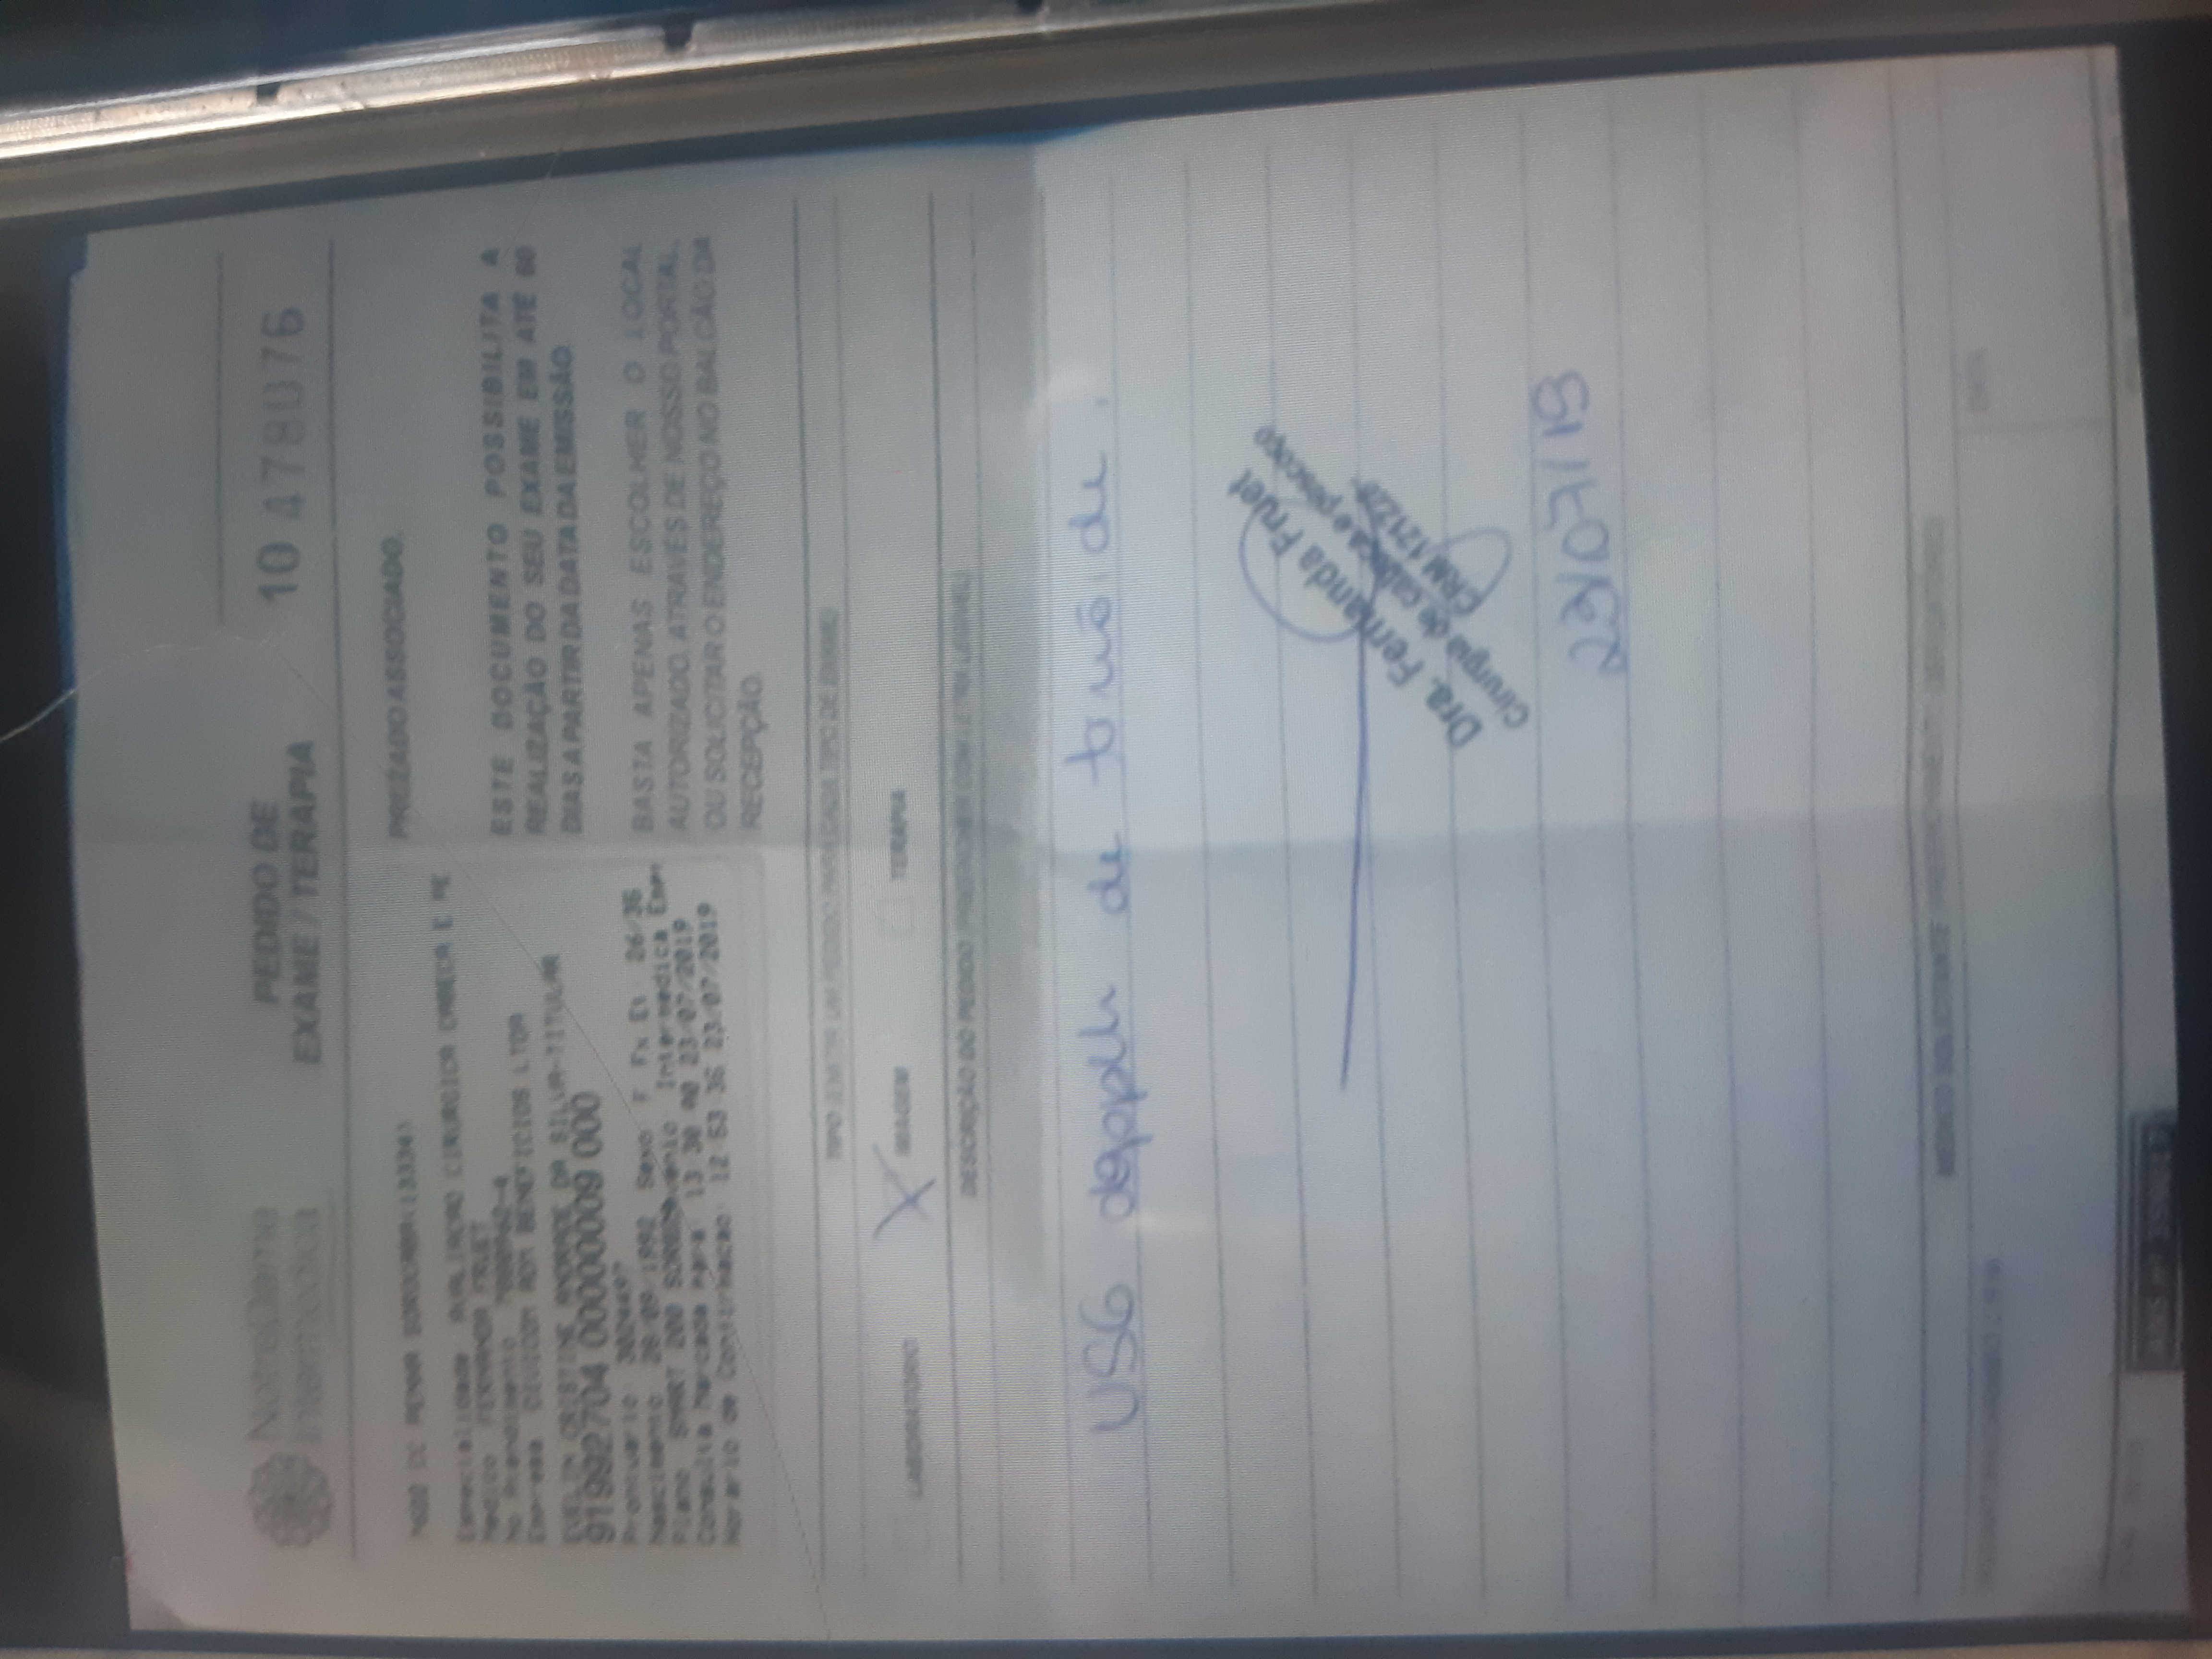 NotreDame
Intermédica
PEDIDO DE
EXAME / TERAPIA
10 478076
PENHA SOROCABA(13334)
Especialidade AVALIACAO CIRURGICA CABECA E PE
Medico FERNANDA FRUET
No Atendimento
Empresa DIVICOM ADM BENEFICIOS LTDA
EVELIN CRISTINE ANDRADE DA SILVA-TITULAR
91992704 00000009 000
Prontuario
Nascimento 28/09/1992 Sexo F Fx Et 26/36
Plano SMART 200 Intermedica
Consulta Marcada para 13 30 00 23/07/2019
Horario de Confirmacao 12 53 36 23/07/2019
PREZADO ASSOCIADO.
ESTE DOCUMENTO POSSIBILITA A
REALIZAÇÃO DO SEU EXAME EM ATÉ 60
DIAS A PARTIR DA DATA DA EMISSÃO.
BASTA APENAS ESCOLHER O LOCAL
AUTORIZADO, ATRAVÉS DE NOSSO PORTAL,
OU SOLICITAR O ENDEREÇO NO BALCÃO DA
RECEPÇÃO.
TIPO (EMITIR UM PEDIDO PARA CADA TIPO DE EXAME)
LABORATÓRIO IMAGEM TERAPIA
DESCRIÇÃO DO PEDIDO (PREENCHER COM LETRA LEGÍVEL)
USG de
Dra. Fernanda Fruet
Cirurgia de cabeça e pescoço
CRM
23/07/19
MÉDICO SOLICITANTE
DATA
ANS nº